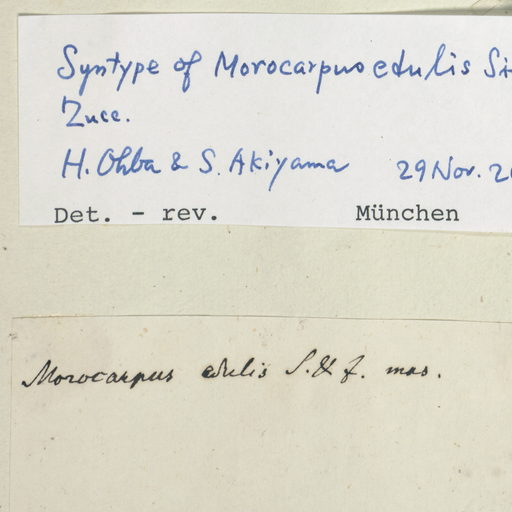 Syntype of Morocarpus edulis
Zucc.
H. Ohba & S. Akiyama 29 Nov.
Det. - rev. München
Morocarpus edulis S. & Z. mas.